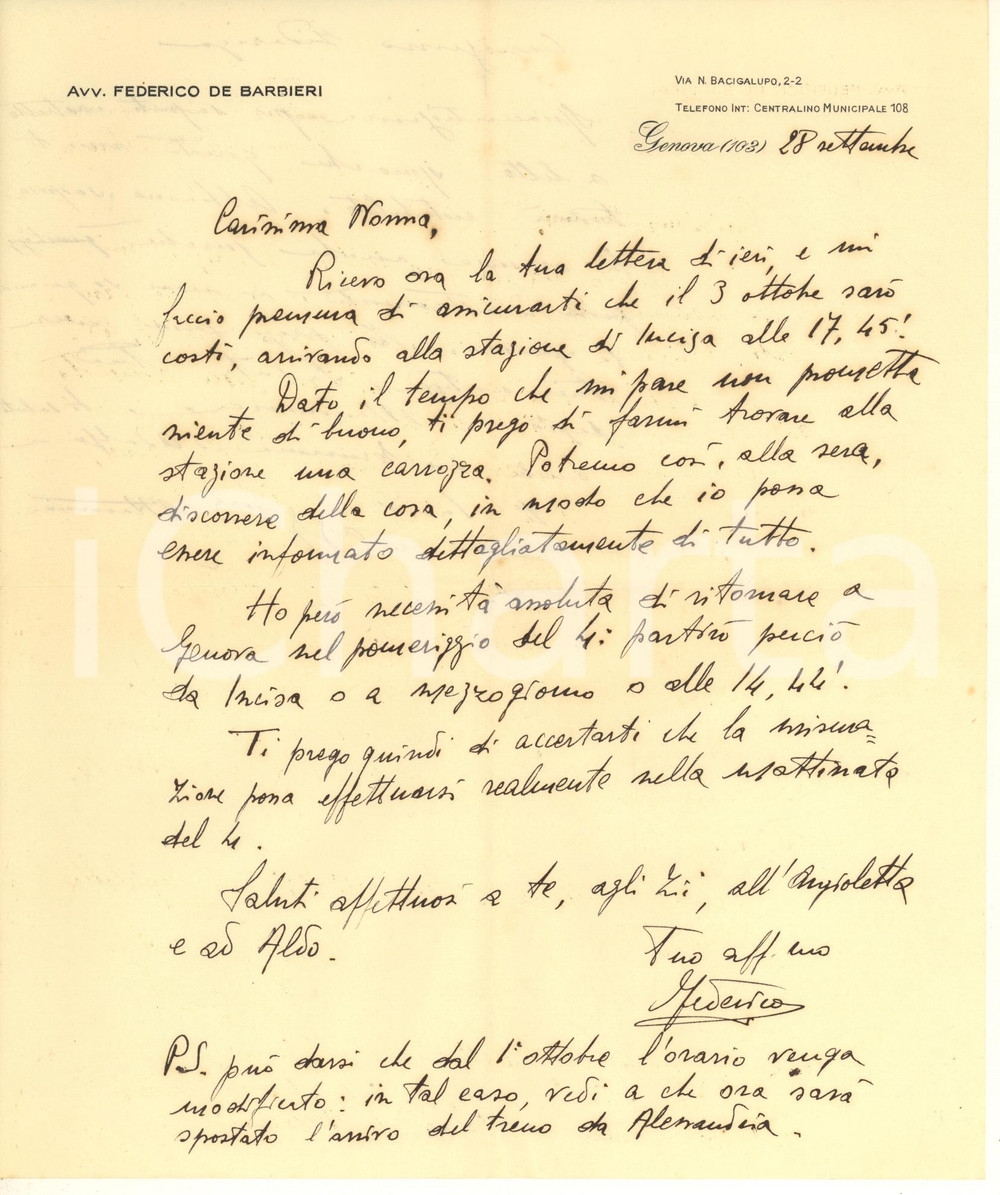 AVV. FEDERICO DE BARBIERI
VIA N. BACIGALUPO, 2-2
TELEFONO INT: CENTRALINO MUNICIPALE 108
Genova (103) 28 settembre
Carissima Nonna,
Ricevo ora la tua lettera di ieri, e mi
faccio premura di assicurarti che il 3 ottobre sarò
costì, arrivando alla stazione di Incisa alle 17,45!
Dato il tempo che mi pare non prometta
niente di buono, ti prego di farmi trovare alla
stazione una carrozza. Potremo così, alla sera,
discorrere della cosa, in modo che io possa
essere informato dettagliatamente di tutto.
Ho però necessità assoluta di ritornare a
Genova nel pomeriggio del 4: partirò perciò
da Incisa o a mezzogiorno o alle 14,44!.
Ti prego quindi di accertarti che la misura=
zione possa effettuarsi realmente nella mattinata
del 4.
Saluti affettuosi a te, agli Zii, all'Angioletta
e ad Aldo.
Tuo aff.mo
Federico
P.S. può darsi che dal 1° ottobre l'orario venga
modificato: in tal caso, vedi a che ora sarà
spostato l'arrivo del treno da Alessandria.
iCharta